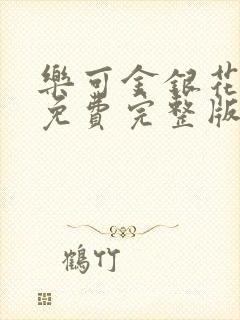 樂可金銀花
免費完整版
鶴竹